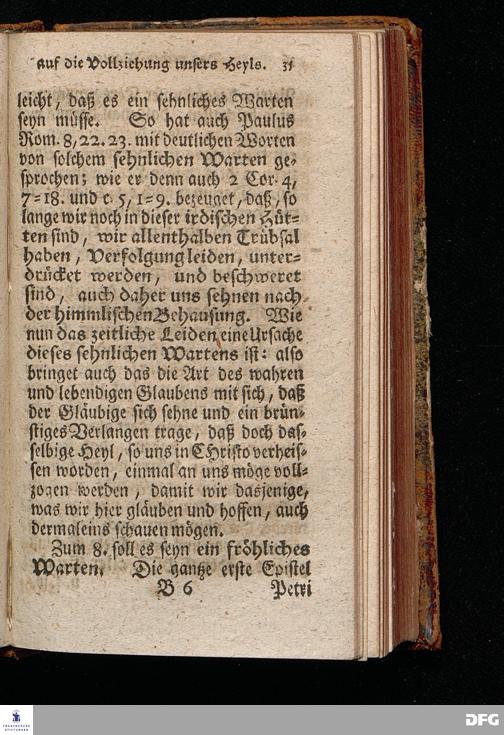 auf die Vollziehung unsers Heyls. 35
leicht, daß es ein sehnliches Warten
seyn müsse. So hat auch Paulus
Rom. 8, 22. 23. mit deutlichen Worten
von solchem sehnlichen Warten ge-
sprochen; wie er denn auch 2 Cor. 4,
7-18. und c. 5, 1-9. bezeuget, daß, so
lange wir noch in dieser irdischen Hüt-
ten sind, wir allenthalben Trübsal
haben, Verfolgung leiden, unter-
drücket werden, und beschweret
sind, auch daher uns sehnen nach
der himmlischen Behausung. Wie
nun das zeitliche Leiden eine Ursache
dieses sehnlichen Wartens ist: also
bringet auch das die Art des wahren
und lebendigen Glaubens mit sich, daß
der Gläubige sich sehne und ein brün-
stiges Verlangen trage, daß doch das-
selbige Heyl, so uns in Christo verheis-
sen worden, einmal an uns möge voll-
zogen werden, damit wir dasjenige,
was wir hier gläuben und hoffen, auch
dermaleins schauen mögen.
Zum 8. soll es seyn ein fröhliches
Warten. Die gantze erste Epistel
B 6 Petri
FRANCKESCHE
STIFTUNGEN
DFG